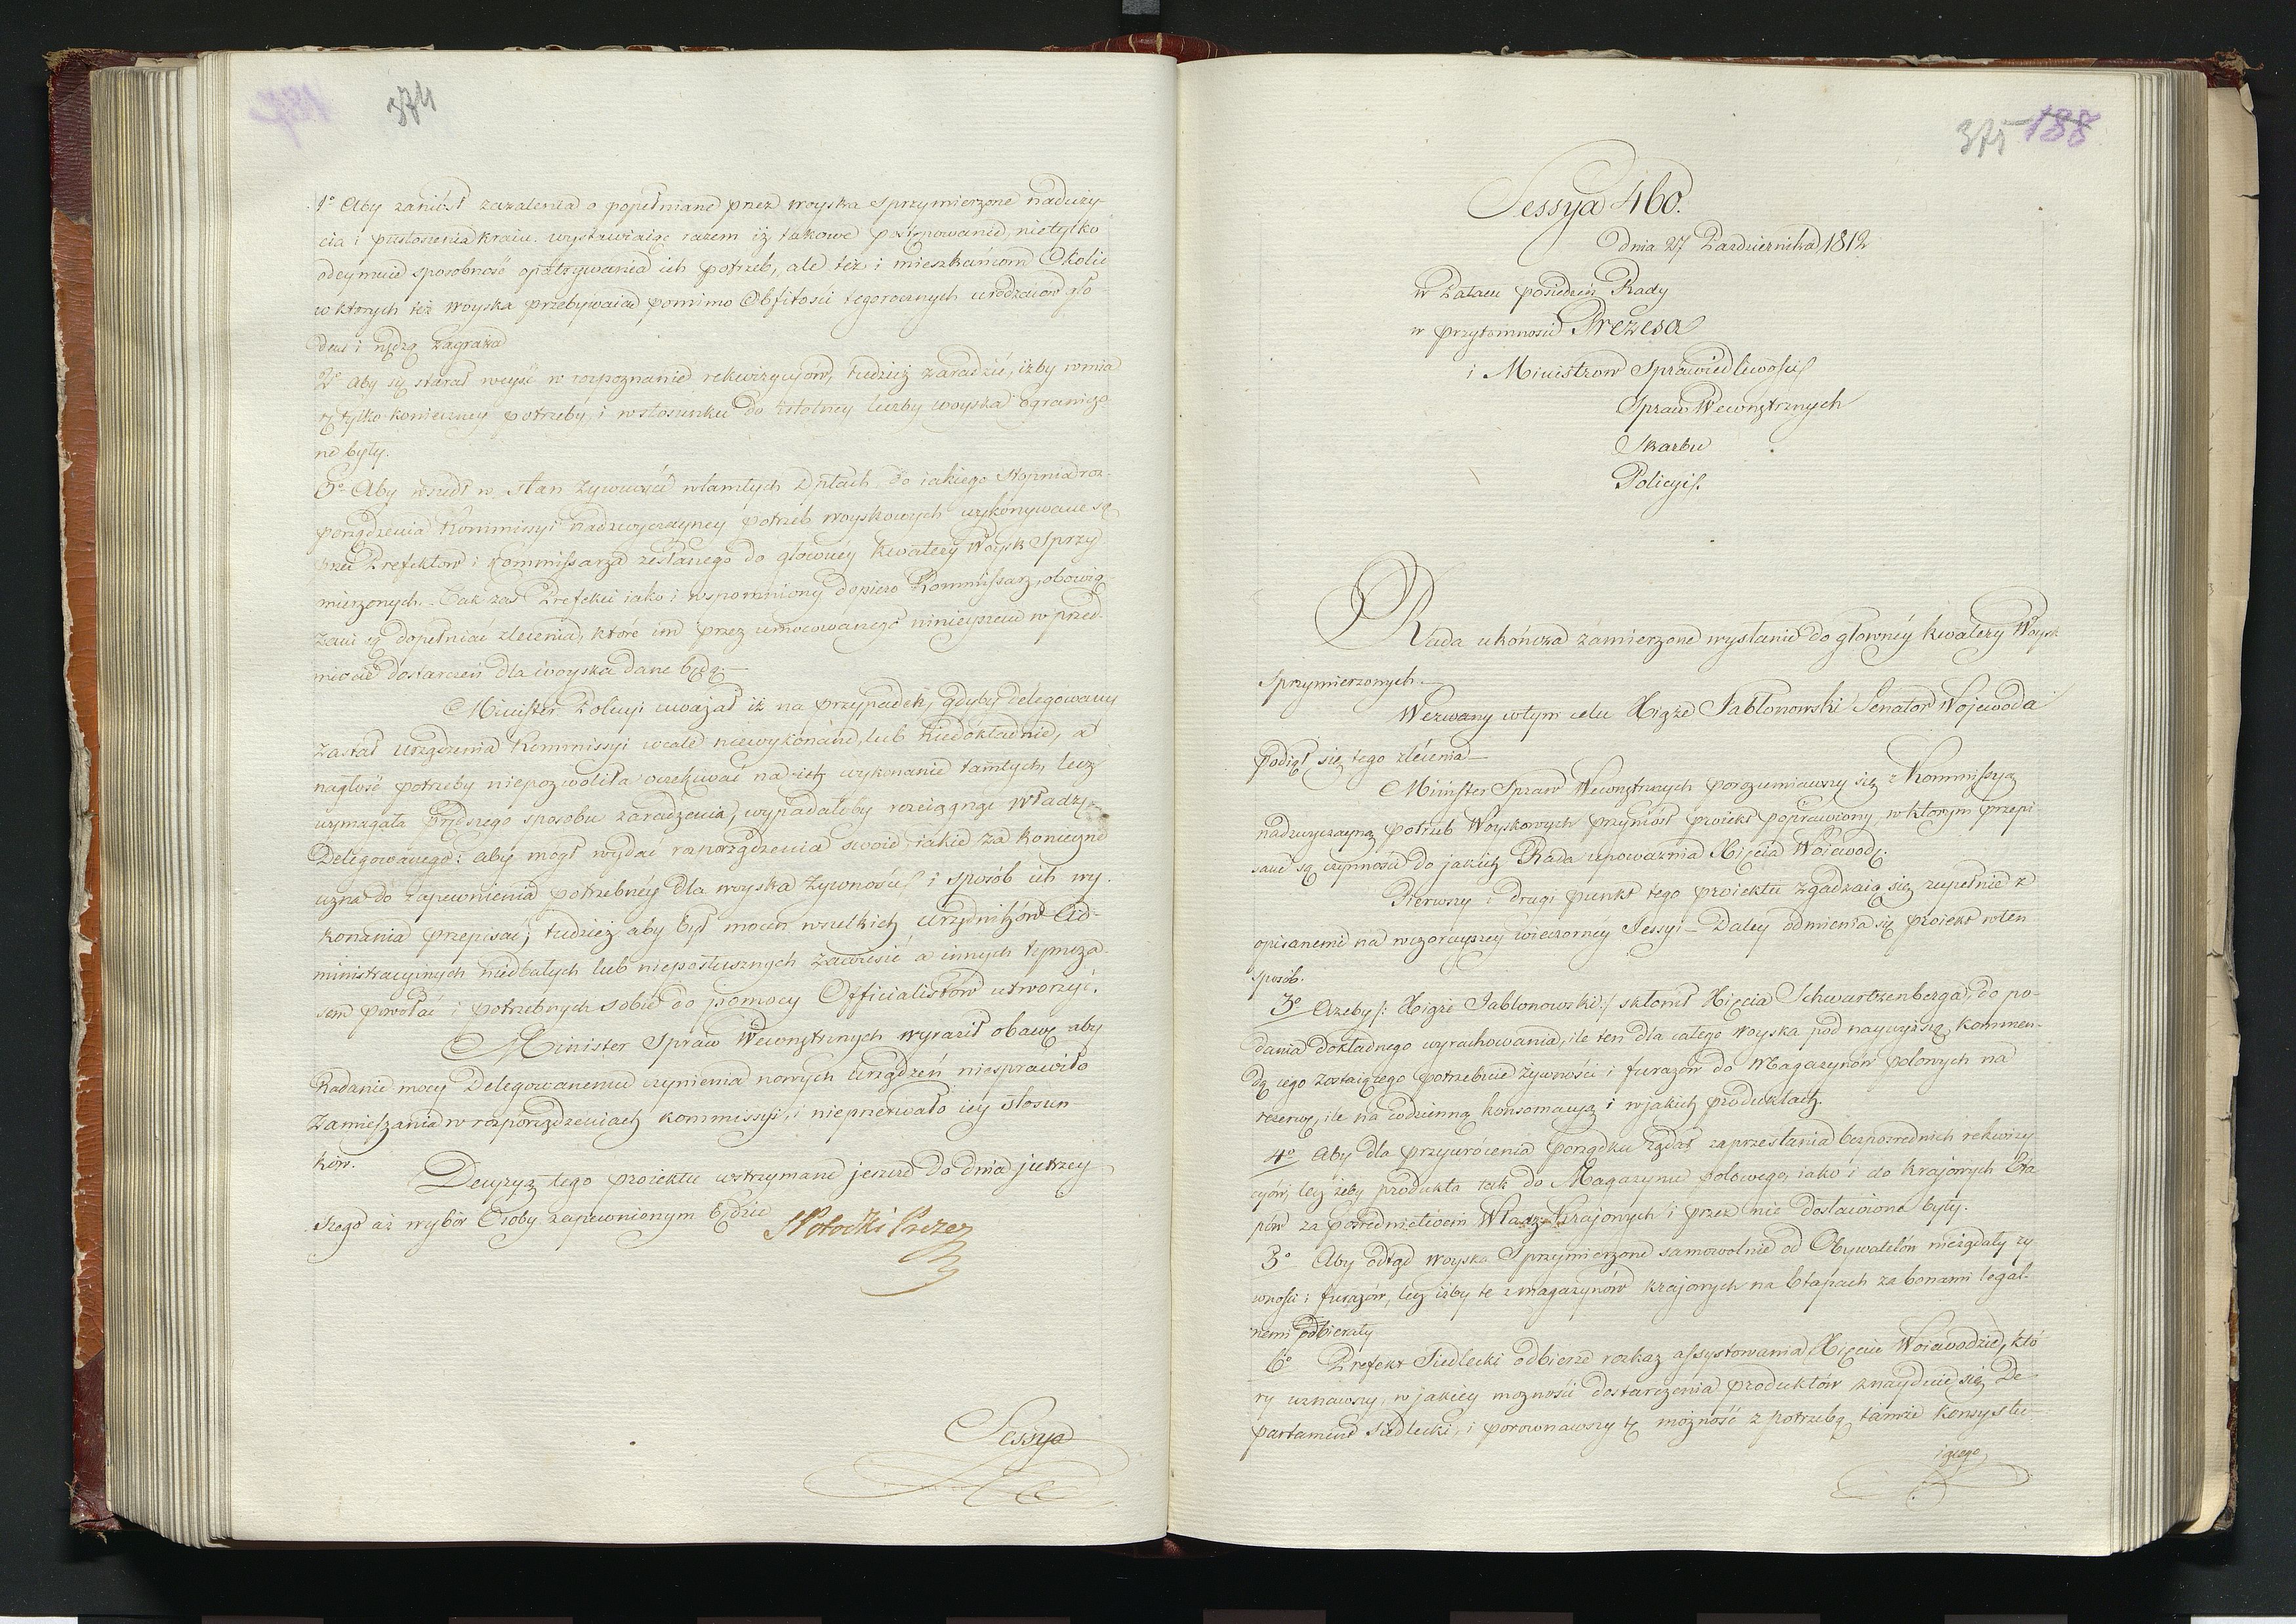 374
1º Aby zaniósł zażalenia o popełniane przez woyska sprzymierzone naduży-
cia i pustoszenia kraiu. wystawiaiąc razem iż takowe postępowanie, nietylko
odeymuie sposobność opatrywania ich potrzeb, ale też i mieszkańcom Okolic
w ktorych też woyska przebywaią pomimo Obfitości tegorocznych urodzaiow gło-
dem i nędzą zagraża
2º aby się starał weyść w rozpoznanie rekwizycyow, tudzież zaradzić, iżby w mia
rę tylko konieczney potrzeby, i w stosunku do istotney liczby woyska ograniczo
ne były.
3º Aby wszedł w stan żywności w tamtych Dptach do iakiego stopnia roz-
porządzenia Kommissyi nadzwyczayney potrzeb woyskowych wykonywane są
przez Prefektow i Kommissarza zesłanego do głowney kwatery Woysk Sprzy
mierzonych. Tak zas Prefekci iako i wspomniony dopiero Kommissarz, obowią
zani są dopełniać zlecenia, które im przez umocowanego ninieyszem w przed-
miocie dostarczeń dla woyska dane będą.—
Minister Policyi uważał iż na przypadek, gdyby Delegowany
zastał urządzenia Kommissyi wcale niewykonane, lub niedokładnie, a
nagłość potrzeby niepozwoliła oczekiwać na ich wykonanie tamtych, lecz
wymagała prędszego sposobu zaradzenia, wypadałoby rozciągnąć władzę
Delegowanego: aby mógł wydać rozporządzenia swoie iakie za konieczne
uzna do zapewnienia potrzebney dla woyska żywności i sposób ich wy-
konania przepisać; tudzież aby był mocen wszelkich urzędników Ad-
ministracyinych niedbałych lub nieposłusznych zawiesić a innych tymcza-
sem powołać i potrzebnych sobie do pomocy Officialistów utworzyć.
Minister Spraw Wewnętrznych wyraził obawę aby
Nadanie mocy Delegowanemu czynienia nowych urządzeń niesprawiło
zamieszania w rozporządzeniach kommissyi, i nieprzerwało iey stosun-
ków.
Decyzyą tego proiektu wstrzymane jeszcze do dnia jutrzey-
szego aż wybór Osoby zapewnionym będzie
S Potocki Prezes
Sessya
375 188
Sessya 460.
Dnia 27 Pazdziernika 1812
w Pałacu posiedzeń Rady
w przytomności Prezesa
i Ministrow Sprawiedliwości
Spraw Wewnętrznych
Skarbu
Policyi.
Rada ukończa zamierzone wysłanie do głowney kwatery Woysk
Sprzymierzonych.—
Wezwany w tym celu Xiąże Jabłonowski Senator Wojewoda
podiął się tego zlecenia—
Minister Spraw Wewnętrznych porozumiawszy się z Kommissyą
nadzwyczayną potrzeb Woyskowych przyniosł proiekt poprawiony, w ktorym przepi
sane są czynności do jakich Rada upoważnia Xięcia Woiewodę.
Pierwszy i drugi punkt tego proiektu zgadzaią się zupełnie z
opisanemi na wczorayszey wieczorney Sessyi — Daley odmienia się proiekt w ten
sposób.
3º Azeby /: Xiąże Jabłonowski :/ skłonił Xięcia Schwartzenberga, do po-
dania dokładnego wyrachowania, ile ten dla całego woyska pod naywyższą kommen-
dą iego zostaiącego potrzebuie żywności i furażów do Magazynów polowych na
rezerwę, ile na codzienną konsomacyą i w jakich produktach.
4º Aby dla przywrócenia porządku żądał zaprzestania bezpośrednich rekwizy
cyów, lecz żeby produkta tak do Magazynu polowego, iako i do krajowych Eta
pów za pośrednictwem Władz Krajowych i przez nie dostawione były.
5º Aby odtąd woyska Sprzymierzone samowolnie od Obywatelów nieżądały ży
wności i furażów, lecz iżby te z magazynów krajowych na Etapach za bonami legal-
nemi odbierały
6º Prefekt Siedlecki odbierze rozkaz assystowania Xięciu Woiewodzie, któ
ry uznawszy, w jakiey możności dostarczenia produktów znayduie się De-
partament Siedlecki, i porownawszy tę możność z potrzebą tamże konsystu-
iącego